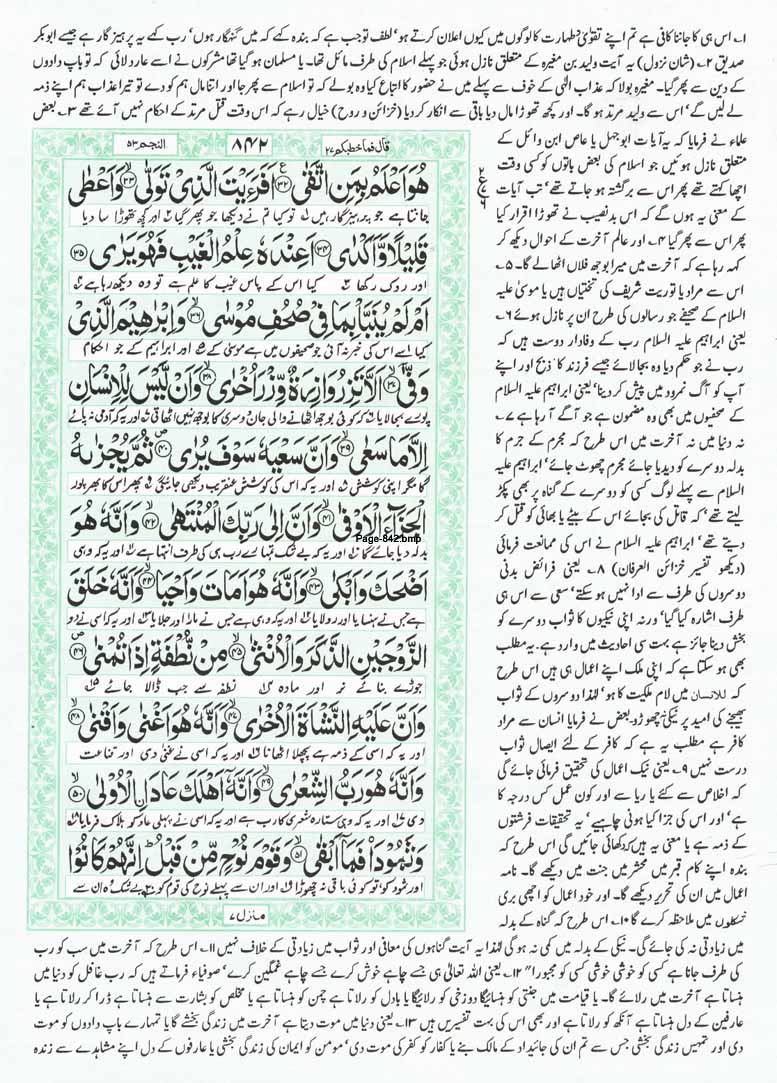 ۱۔ اس ہی کا جاننا کافی ہے تم اپنے تقوٰی طہارت کا لوگوں میں کیوں اعلان کرتے ہو' لطف تو جب ہے کہ بندہ کہے کہ میں گنہگار ہوں' رب کہے یہ پرہیز گار ہے جیسے ابوبکر
صدیق ۲۔ (شان نزول) یہ آیت ولید بن مغیرہ کے متعلق نازل ہوئی جو پہلے اسلام کی طرف مائل تھا۔ یا مسلمان ہو گیا تھا مشرکوں نے اسے عار دلائی کہ تو باپ دادوں
کے دین سے پھر گیا۔ مغیرہ بولا کہ عذاب الٰہی کے خوف سے پہلے میں نے حضور کا اتباع کیا وہ بولے کہ تو اسلام سے پھر جا اور اتنا مال ہم کو دے تو تیرا عذاب ہم اپنے ذمہ
لے لیں گے' اس سے ولید مرتد ہو گا۔ اور کچھ تھوڑا مال دیا باقی سے انکار کر دیا (خزائن و روح) خیال رہے کہ اس وقت قتل مرتد کے احکام نہیں آئے تھے ۳۔ بعض
علماء نے فرمایا کہ یہ آیات ابوجہل یا عاص ابن وائل کے
متعلق نازل ہوئیں جو اسلام کی بعض باتوں کو کسی وقت
اچھا کہتے تھے پھر اس سے برگشتہ ہو جاتے تھے' تب آیات
کے معنی یہ ہوں گے کہ اس بد نصیب نے تھوڑا اقرار کیا
پھر اس سے پھر گیا ۴۔ اور عالم آخرت کے احوال دیکھ کر
کہہ رہا ہے کہ آخرت میں میرا بوجھ فلاں اٹھا لے گا۔ ۵۔
اس سے مراد یا توریت شریف کی تختیاں ہیں یا موسیٰ علیہ
السلام کے صحیفے جو رسالوں کی طرح ان پر نازل ہوئے ۶۔
یعنی ابراہیم علیہ السلام رب کے وفادار دوست ہیں کہ
رب نے جو حکم دیا وہ بجا لائے جیسے فرزند کا ذبح اور اپنے
آپ کو آگ نمرود میں پیش کر دینا' یعنی ابراہیم علیہ السلام
کے صحیفوں میں بھی وہ مضمون ہے جو آگے آ رہا ہے ۷۔
نہ دنیا میں نہ آخرت میں اس طرح کہ مجرم کے جرم کا
بدلہ دوسرے کو دیدیا جائے مجرم چھوٹ جائے' ابراہیم علیہ
السلام سے پہلے لوگ کسی کو دوسرے کے گناہ پر بھی پکڑ
لیتے تھے' کہ قاتل کی بجائے اس کے بیٹے یا بھائی کو قتل کر
دیتے تھے' ابراہیم علیہ السلام نے اس کی ممانعت فرمائی
(دیکھو تفسیر خزائن العرفان) ۸۔ یعنی فرائض بدنی
دوسروں کی طرف سے ادا نہیں ہو سکتے' سعی سے اس ہی
طرف اشارہ کیا گیا' ورنہ اپنی نیکیوں کا ثواب دوسرے کو
بخش دینا جائز ہے بہت سی احادیث میں وارد ہے۔ یہ مطلب
بھی ہو سکتا ہے کہ اپنی ملک اپنے اعمال ہی ہیں اس طرح
کہ للانسان میں لام ملکیت کا ہو' لہٰذا دوسروں کے ثواب
بھیجنے کی امید پر نیکی نہ چھوڑو۔ بعض نے فرمایا انسان سے مراد
کافر ہے مطلب یہ ہے کہ کافر کے لئے ایصال ثواب
درست نہیں ۹۔ یعنی نیک اعمال کی تحقیق فرمائی جائے گی
کہ اخلاص سے کئے یا ریا سے اور کون عمل کس درجہ کا
ہے' اور اس کی جزا کیا ہونی چاہیے' یہ تحقیقات فرشتوں
کے ذمہ ہے یا معنی یہ ہیں کہ دکھائی جائیں گی اس طرح کہ
بندہ اپنے کام قبر میں محشر میں جنت میں دیکھے گا۔ نامہ
اعمال میں ان کی تحریر دیکھے گا۔ اور خود اعمال کو اچھی بری
شکلوں میں ملاحظہ کرے گا ۱۰۔ اس طرح کہ گناہ کے بدلہ
قال فما خطبکم ۲۷
۸۴۲
النجم ۵۳
هُوَ اَعْلَمُ بِمَنِ اتَّقٰى ﴿۳۲﴾ اَفَرَءَيْتَ الَّذِىْ تَوَلّٰى ﴿۳۳﴾ وَاَعْطٰى
جانتا ہے جو پرہیزگار ہیں تو کیا تم نے دیکھا جو پھر گیا اور کچھ تھوڑا سا دیا
قَلِيْلًا وَّاَكْدٰى ﴿۳۴﴾ اَعِنْدَهٗ عِلْمُ الْغَيْبِ فَهُوَ يَرٰى ﴿۳۵﴾
اور روک رکھا کیا اس کے پاس غیب کا علم ہے تو وہ دیکھ رہا ہے
اَمْ لَمْ يُنَبَّاْ بِمَا فِىْ صُحُفِ مُوْسٰى ﴿۳۶﴾ وَاِبْرٰهِيْمَ الَّذِىْ
کیا اسے اس کی خبر نہ آئی جو صحیفوں میں ہے موسیٰ کے اور ابراہیم کے جو احکام
وَفّٰى ﴿۳۷﴾ اَلَّا تَزِرُ وَازِرَةٌ وِّزْرَ اُخْرٰى ﴿۳۸﴾ وَاَنْ لَّيْسَ لِلْاِنْسَانِ
پورے بجا لایا کہ کوئی بوجھ اٹھانے والی جان دوسری کا بوجھ نہیں اٹھاتی اور یہ کہ آدمی نہ پائے
اِلَّا مَا سَعٰى ﴿۳۹﴾ وَاَنَّ سَعْيَهٗ سَوْفَ يُرٰى ﴿۴۰﴾ ثُمَّ يُجْزٰىهُ
گا مگر اپنی کوشش اور یہ کہ اس کی کوشش عنقریب دیکھی جائیگی پھر اس کا بھرپور
الْجَزَآءَ الْاَوْفٰى ﴿۴۱﴾ وَاَنَّ اِلٰى رَبِّكَ الْمُنْتَهٰى ﴿۴۲﴾ وَاَنَّهٗ هُوَ
Page-842.bmp
بدلہ دیا جائے گا اور یہ کہ بے شک تمہارے رب ہی کی طرف انتہا ہے اور یہ کہ وہی
اَضْحَكَ وَاَبْكٰى ﴿۴۳﴾ وَاَنَّهٗ هُوَ اَمَاتَ وَاَحْيَا ﴿۴۴﴾ وَاَنَّهٗ خَلَقَ
ہے جس نے ہنسایا اور رولایا اور یہ کہ وہی ہے جس نے مارا اور جلایا اور یہ کہ اسی نے دو
الزَّوْجَيْنِ الذَّكَرَ وَالْاُنْثٰى ﴿۴۵﴾ مِنْ نُّطْفَةٍ اِذَا تُمْنٰى ﴿۴۶﴾
جوڑے بنائے نر اور مادہ نطفہ سے جب ڈالا جائے
وَاَنَّ عَلَيْهِ النَّشْاَةَ الْاُخْرٰى ﴿۴۷﴾ وَاَنَّهٗ هُوَ اَغْنٰى وَاَقْنٰى ﴿۴۸﴾
اور یہ کہ اسی کے ذمہ ہے پچھلا اٹھانا اور یہ کہ اسی نے غنیٰ دی اور قناعت
وَاَنَّهٗ هُوَ رَبُّ الشِّعْرٰى ﴿۴۹﴾ وَاَنَّهٗٓ اَهْلَكَ عَادَا۟ الْاُوْلٰى ﴿۵۰﴾
دی اور یہ کہ وہی ستارہ شعریٰ کا رب ہے اور یہ کہ اسی نے پہلی عاد کو ہلاک فرمایا
وَثَمُوْدَا۟ فَمَآ اَبْقٰى ﴿۵۱﴾ وَقَوْمَ نُوْحٍ مِّنْ قَبْلُ اِنَّهُمْ كَانُوْا
اور ثمود کو تو کوئی باقی نہ چھوڑا اور ان سے پہلے نوح کی قوم کو بیشک وہ ان سے
منزل ۷
میں زیادتی نہ کی جائے گی۔ نیکی کے بدلہ میں کمی نہ ہو گی لہٰذا یہ آیت گناہوں کی معافی اور ثواب میں زیادتی کے خلاف نہیں ۱۱۔ اس طرح کہ آخرت میں سب کو رب
کی طرف جانا ہے کسی کو خوشی خوشی کسی کو مجبوراً ۱۲۔ یعنی اللہ تعالیٰ ہی جسے چاہے خوش کرے جسے چاہے غمگین کرے' صوفیاء فرماتے ہیں کہ رب غافل کو دنیا میں
ہنساتا ہے آخرت میں رلائے گا۔ یا قیامت میں جنتی کو ہنسائیگا دوزخی کو رلائیگا یا بادل کو رلاتا ہے چمن کو ہنساتا ہے یا مخلص کو بشارت سے ہنساتا ہے ڈرا کر رلاتا ہے یا
عارفین کے دل ہنساتا ہے آنکھ کو رلاتا ہے اور بھی اس کی بہت تفسیریں ہیں ۱۳۔ یعنی دنیا میں موت دیتا ہے آخرت میں زندگی بخشے گا یا تمہارے باپ دادوں کو موت
دی اور تمہیں زندگی بخشی جس سے تم ان کی جائیداد کے مالک بنے یا کفار کو کفر کی موت دی' مومن کو ایمان کی زندگی بخشی یا عارفوں کے دل اپنے مشاہدے سے زندہ